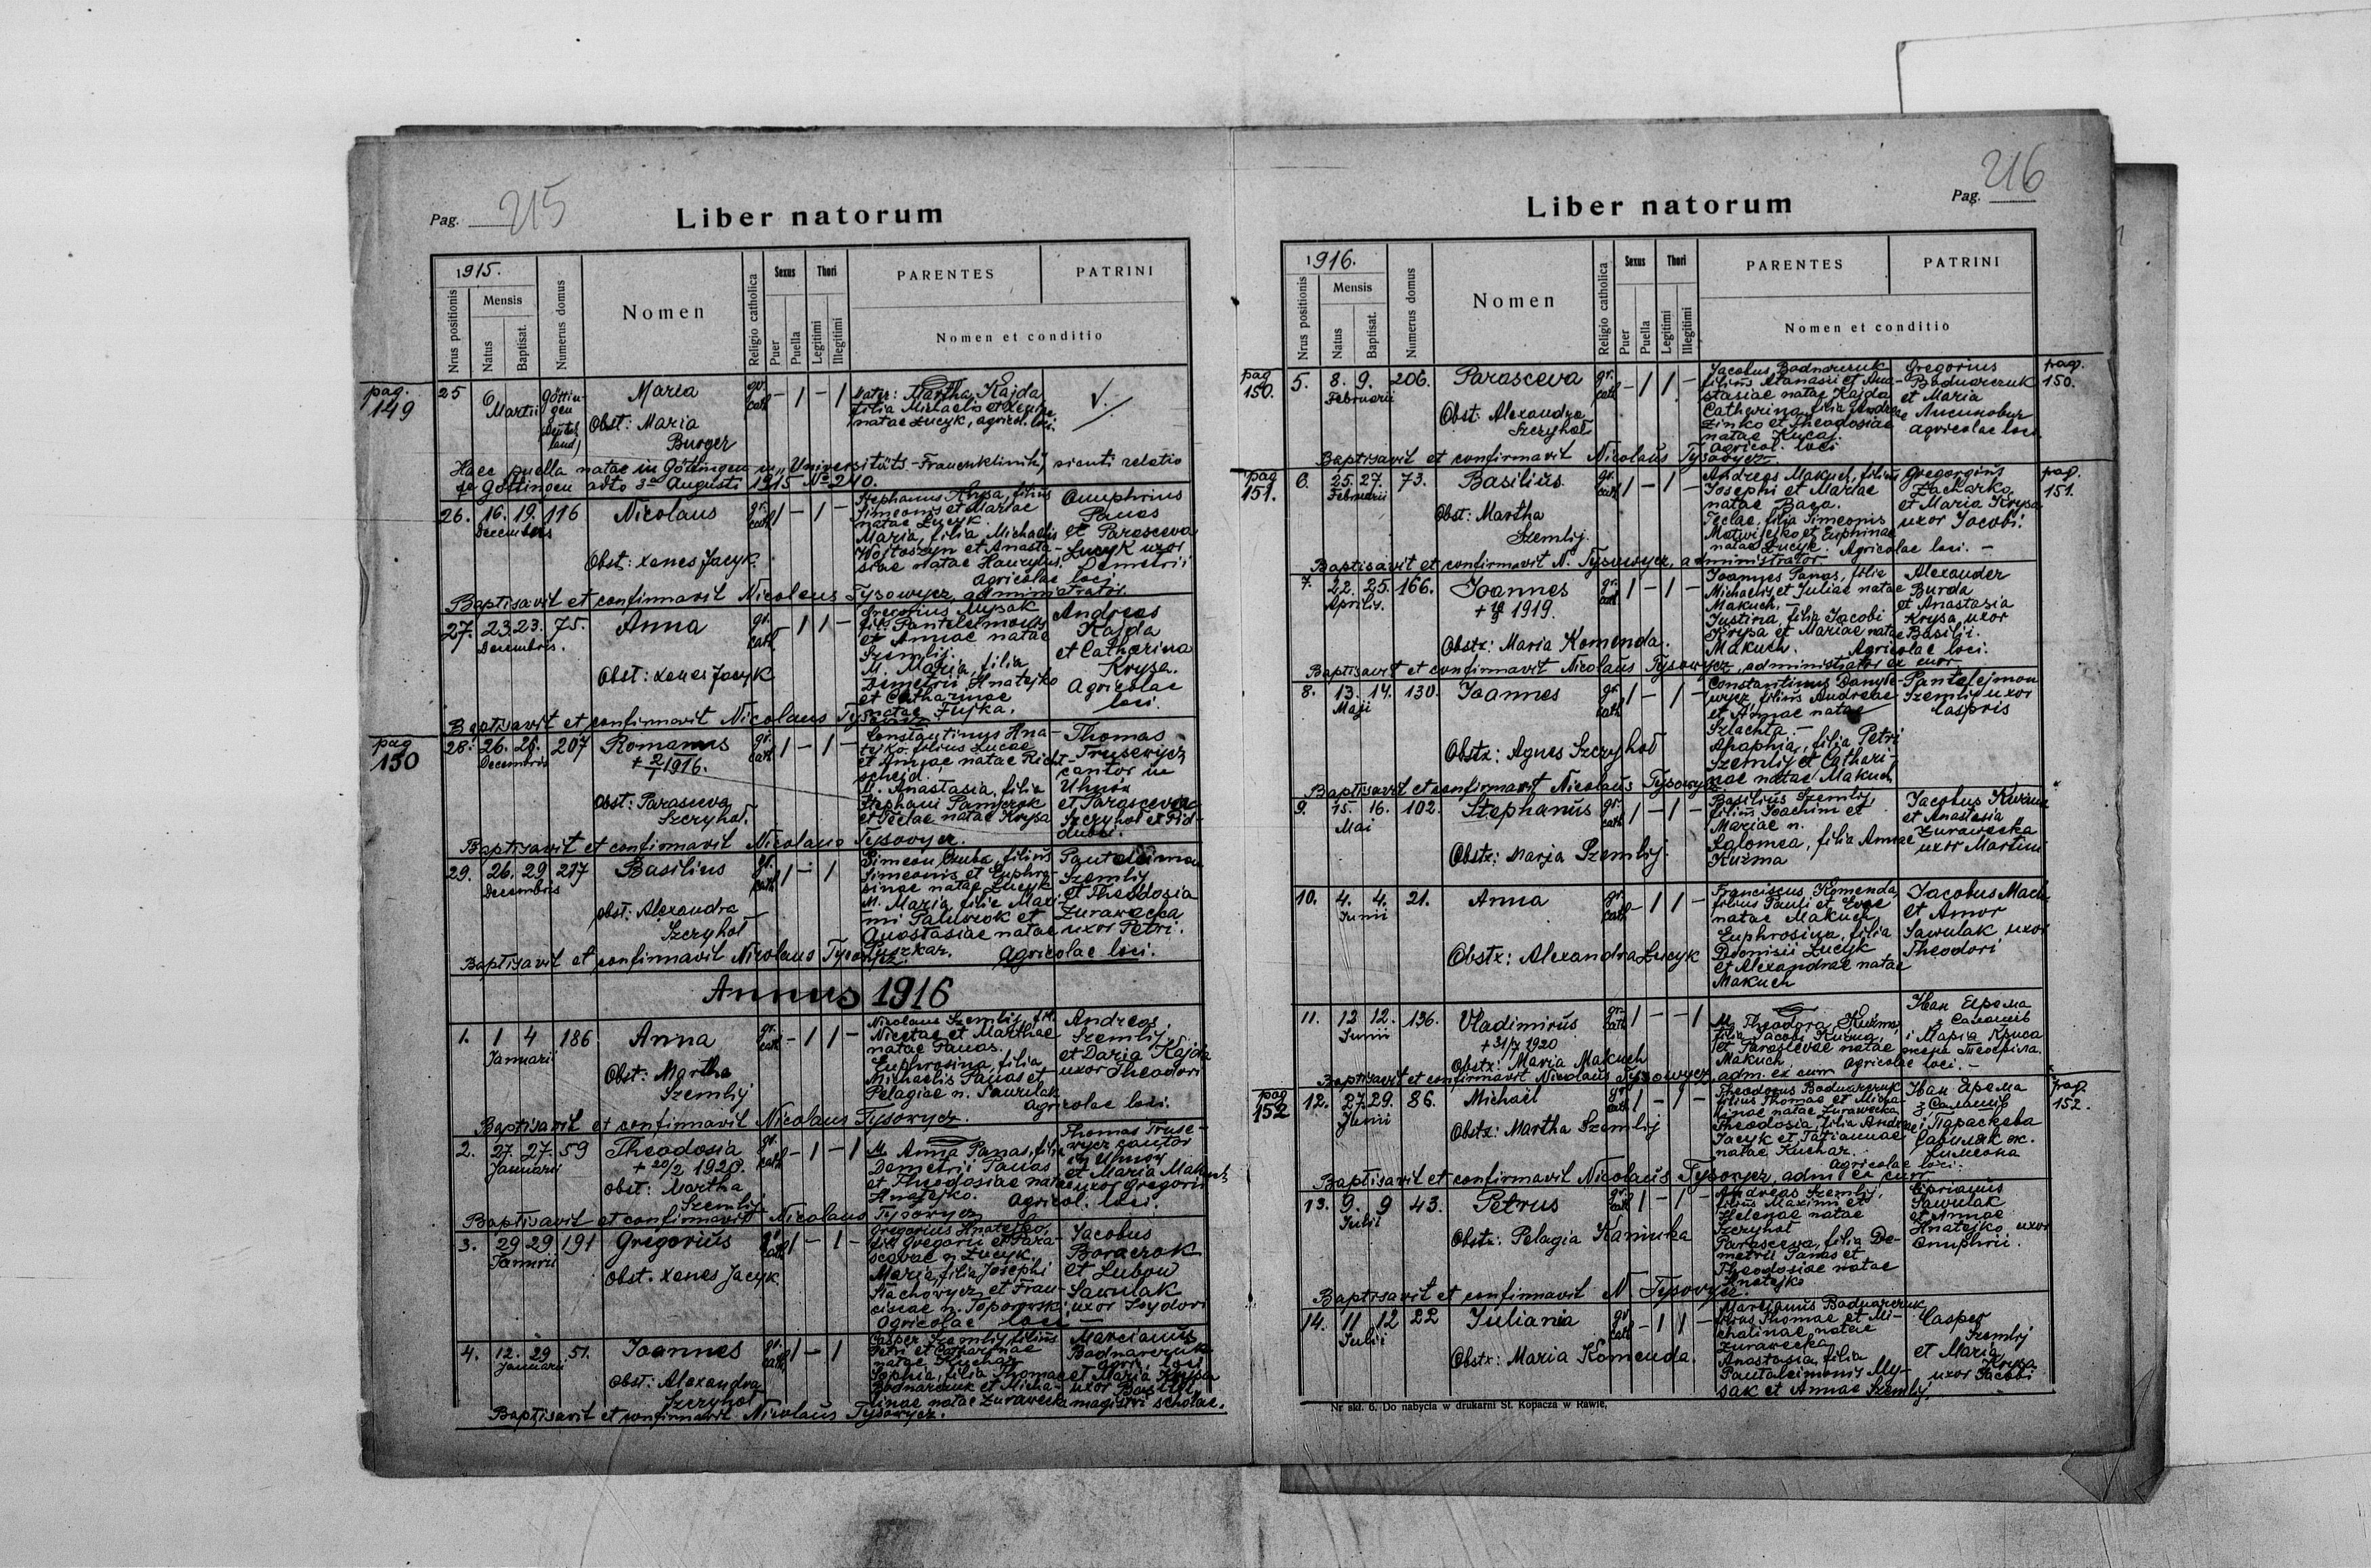 Pag. 215
Liber natorum
1915.
Nrus positionis
Mensis
Natus
Baptisat.
Numerus domus
Nomen
Religio catholica
Sexus
Puer
Puella
Thori
Legitimi
Illegitimi
PARENTES
PATRINI
Nomen et conditio
pag. 149
25 6 Martii Göttingen Maria gr. cath. – 1 – 1
Obst: Maria
Burger
Mater: Martha Kajda
filia Michaelis et
natae Łucyk, agricol. loci.
Haec puella natae in Göttingen in "Universitäts-Frauenklinik", sicuti relatio
de Göttingen adto 3a Augusti 1915 No 240.
26. 16. 19. 116 Nicolaus gr. cath. 1 – 1 –
Decembris
Obst: Xenes Jacyk.
Stephanus Krysa, filius
Simeonis et Mariae
natae Łucyk.
Maria, filia Michaelis
Wojtoszyn et Anasta-
siae natae
Onuphrius
Panas
et Parasceva
Łucyk uxor
Demetrii
agricolae loci.
Baptisavit et confirmavit Nicolaus Tysowycz, administrator.
27. 23. 23. 75. Anna gr. cath. – 1 1 –
Decembris.
Obst: Xenes Jacyk
Gregorius Mysak
fil. Panteleimonis
et Annae natae
Szemlij.
M. Maria, filia
Demetrii Hnatejko
et Catharinae
natae Fujka.
Andreas
Kajda
et Catharina
Krysa.
Agricolae
loci.
Baptisavit et confirmavit Nicolaus Tysowycz
pag 150
28. 26. 28. 207 Romanus gr. cath. 1 – 1 –
Decembris
+ 2/1 1916.
Obst: Parasceva
Szczyhoł.
Constantinus Hna-
tejko filius Lucae
et Annae natae Richt-
scheid.
M. Anastasia, filia
Stephani Pamczok
et Teclae natae Krysa
Thomas
Trusewycz
cantor in
Uhnów
et Parasceva
Szczyhoł et Pid-
dubci.
Baptisavit et confirmavit Nicolaus Tysowycz.
29. 26. 29. 217 Basilius gr. cath. 1 – 1
Decembris
Obst: Alexandra
Szczyhoł
Simeon Czuba, filius
Simeonis et Euphro-
sinae natae Łucyk
M. Maria, filia Maxi-
mi Pamczok et
Anastasiae natae
Puszkar.
Pantaleimon
Szemlij
et Theodosia
Żurawecka
uxor Petri.
Agricolae loci.
Baptisavit et confirmavit Nicolaus Tysowycz.
Annus 1916
1. 1 4 186 Anna gr. cath – 1 1 –
Januarii
Obst: Martha
Szemlij
Nicolaus Szemlij, fil.
Nicetae et Marthae
natae Panas.
Euphrosina, filia
Michaelis Panas et
Pelagiae n. Sawulak
Andreas
Szemlij
et Daria Kajda
uxor Theodori
Agricolae loci.
Baptisavit et confirmavit Nicolaus Tysowycz.
2. 27. 27. 59 Theodosia gr. cath. – 1 – 1
Januarii
+ 20/2 1920.
Obst: Martha
Szemlij
M. Anna Panas, filia
Demetrii Panas
et Theodosiae natae
Hnatejko.
Thomas Truse-
wycz cantor
in Uhnów
et Maria Makuch
uxor Gregorii
Agricol. loci.
Baptisavit et confirmavit Nicolaus Tysowycz
3. 29 29 191 Gregorius gr. cath. 1 – 1 –
Januarii
Obst. Xenes Jacyk.
Gregorius Hnatejko,
fil. Gregorii et Para-
scevae n. Łucyk.
Maria, filia Josephi
Stachowycz et Fran-
ciscae n. Toporowski
Jacobus
Boraczok
et Lubow
Sawulak
uxor Isydori
Agricolae loci –
4. 12. 29 51. Joannes gr. cath. 1 – 1
Januarii
Obst: Alexandra
Szczyhoł
Casper Szemlij, filius
Petri et Catharinae
natae Kuchar
Sophia, filia Thomae
Bodnarczuk et Micha-
linae natae Żurawecka
Marcianus
Bodnarczuk
agric. loci
et Maria Krysa
uxor Basilii
magistri scholae.
Baptisavit et confirmavit Nicolaus Tysowycz.
Pag. 216
Liber natorum
1916.
Nrus positionis
Mensis
Natus
Baptisat.
Numerus domus
Nomen
Religio catholica
Sexus
Puer
Puella
Thori
Legitimi
Illegitimi
PARENTES
PATRINI
Nomen et conditio
pag 150.
5. 8. 9. 206. Parasceva gr. cath. – 1 1 –
Februarii
Obst: Alexandra
Szczyhoł
Jacobus Bodnarczuk
filius Atanasii et Ana-
stasiae natae Kajda
Catharina, filia Andreae
Zinko et Theodosiae
natae Kucaj.
Agricol. loci
Gregorius
Bodnarczuk
et Maria
agricolae loci.
pag. 150.
Baptisavit et confirmavit Nicolaus Tysowycz.
pag 151.
6. 25. 27. 73. Basilius gr. cath. 1 – 1 –
Februarii
Obst: Martha
Szemlij.
Andreas Makuch, filius
Josephi et Mariae
natae Baga.
Teclae, filia Simeonis
Matwijejko et Euphrinae
natae Łucyk.
Gregorgius
Zacharko
et Maria Krysa
uxor Jacobi.
Agricolae loci. –
pag. 151.
Baptisavit et confirmavit N. Tysowycz, administrator.
7. 22. 25. 166. Joannes gr. cath. 1 – 1 –
Aprilis.
1919.
Obstx: Maria Komenda.
Joannes Panas, filie
Michaelis et Juliae natae
Makuch. –
Justina, filia Jacobi
Krysa et Mariae natae
Makuch.
Alexander
Burda
et Anastasia
Krysa, uxor
Basilii.
Agricolae loci.
Baptisavit et confirmavit Nicolaus Tysowycz, administrator ex curr.
8. 13. 14. 130. Joannes gr. cath 1 – 1 –
Maji
Obstx: Agnes Szczyhoł
Constantinus Danyle-
wycz, filius Andreae
et Annae natae
Szlachta. –
Ahaphia, filia Petri
Szemlij et Cathari-
nae natae Makuch
Pantelejmon
Szemlij uxor
Caspris
Baptisavit et confirmavit Nicolaus Tysowycz.
9. 15. 16. 102. Stephanus gr. cath 1 – 1 –
Mai
Obstx: Marja Szemlij.
Basilius Szemlij,
filius Joachim et
Mariae n.
Salomea, filia Annae
Kuźma
Jacobus Kuźma
et Anastasia
Żurawecka
uxor Martini
10. 4. 4. 21. Anna gr. cath – 1 1 –
Junii
Obstx: Alexandra Łucyk
Franciscus Komenda,
filius Pauli et Evae
natae Makuch
Euphrosina, filia
Dionisii Łucyk
et Alexandrae natae
Makuch
Jacobus Mach
et Amor
Sawulak, uxor
Theodori
11. 12 12. 136. Vladimirus gr. cath 1 – – 1
Junii
+ 31/7 1920
Obstx: Maria Makuch
M. Theodora Kuźma,
filia Jacobi Kuźma,
et Paraslevae natae
Makuch
Agricolae loci. –
Іван Ярема
з Салашів
і Марія Криса
жена Теофіла.
Baptisavit et confirmavit Nicolaus Tysowycz, adm. ex curr
pag 152
12. 27. 29. 86. Michaël gr. cath 1 – 1 –
Junii
Obstx: Martha Szemlij
Theodorus Bodnarczuk
filius Thomae et Micha-
linae natae Żurawecka
Theodosia, filia Andreae
Jacyk et Tatiannae
natae Kuchar.
Agricolae loci.
Іван Ярема
з Салашів
і Параскева
Савуляк ж.
Симеона
pag. 152.
Baptisavit et confirmavit Nicolaus Tysowycz, adm. ex curr
13. 9. 9 43. Petrus gr. cath 1 – 1 –
Julii
Obstx: Pelagia Kaminka
Andreas Szemlij,
filius Maximi et
Helenae natae
Szczyhoł
Parasceva, filia De-
metrii Panas et
Theodosiae natae
Hnatejko
Ciprianus
Sawulak
et Annae
Hnatejko uxor
Onuphrii.
Baptisavit et confirmavit N Tysowycz.
14. 11 12 22 Iuliania gr. cath – 1 1 –
Julii
Obstx: Maria Komenda.
Marcianus Bodnarczuk,
filius Thomae et Mi-
chalinae, natae
Żurawecka
Anastasia, filia
Pantaleimonis My-
sak et Annae Szemlij
Casper
Szemlij
et Maria
Krysa
uxor Jacobi
Nr skł. 6. Do nabycia w drukarni St. Kopacza w Rawie.